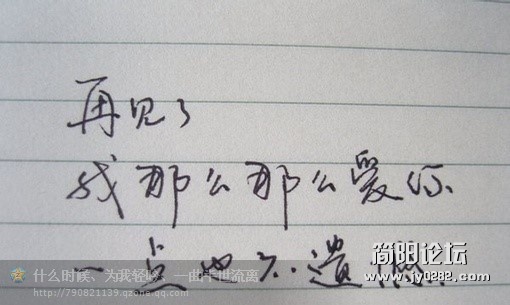 再见了
我那么那么爱你
一点也不遗憾.
什么时候、为我轻吟、一曲半世流离
http://790821139.qzone.qq.com
简阳论坛
www.jy0832.com